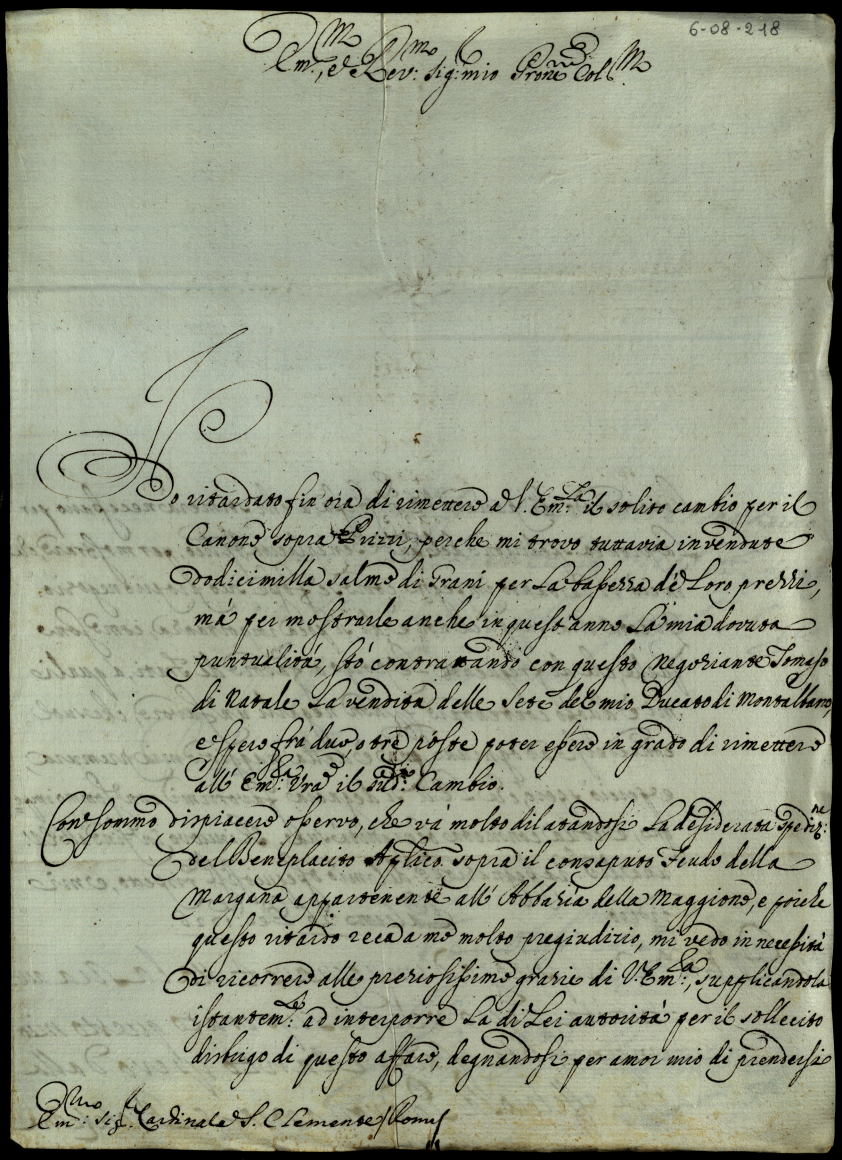 6-08-218
Em.mo, e Rev.mo Sig.r mio Prone Coll.mo
Ho ritardato fin'ora di rimettere a V. Em.za il solito cambio per il
Canone sopra Prizzi, perche mi trovo tuttavia invendute
dodicimilla salme di Grani per la bassezza de loro prezzi,
má per mostrarle anche in quest'anno la mia dovuta
puntualitá, stó contrattando con questo Negoziante Tomaso
di Natale la vendita delle Sete del mio Ducato di Montalbano,
e spero frá due, o tre poste poter essere in grado di rimettere
all' Em.za Vra il sud.o Cambio.
Con sommo dispiacere osservo, che vá molto dilatandosi la desiderata spediz.ne
del Beneplacito Aplico sopra il consaputo Feudo della
Margana appartenente all' Abbazia della Maggione, e poiche
questo ritardo reca a me molto pregiudizio, mi vedo in necessitá
di ricorrere alle preziosissime grazie di V. Em.za, supplicandola
istantem.te ad interporre la di Lei autoritá per il sollecito
disbrigo di questo affare, degnandosi per amor mio di prendersi
Em.mo Sig.r Cardinale S. Clemente / Roma /